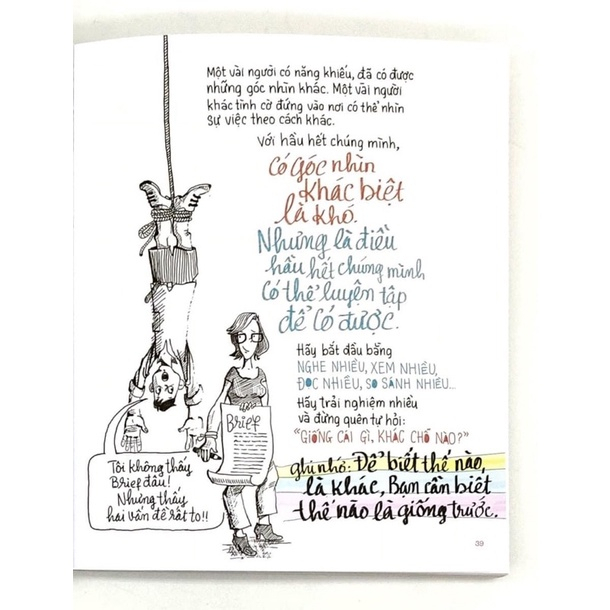 Một vài người có năng khiếu, đã có được
những góc nhìn khác. Một vài người
khác tình cờ đứng vào nơi có thể nhìn
sự việc theo cách khác.
Với hầu hết chúng mình,
có góc nhìn
khác biệt
là khó.
Nhưng là điều
hầu hết chúng mình
có thể luyện tập
để có được.
Hãy bắt đầu bằng
NGHE NHIỀU, XEM NHIỀU,
ĐỌC NHIỀU, SO SÁNH NHIỀU...
Hãy trải nghiệm nhiều
và đừng quên tự hỏi:
"GIỐNG CÁI GÌ, KHÁC CHỖ NÀO?"
ghi nhớ: Để biết thế nào,
là khác, Bạn cần biết
thế nào là giống trước.
Brief
Tôi không thấy
Brief đâu!
Nhưng thấy
hai vấn đề rất to!!
39